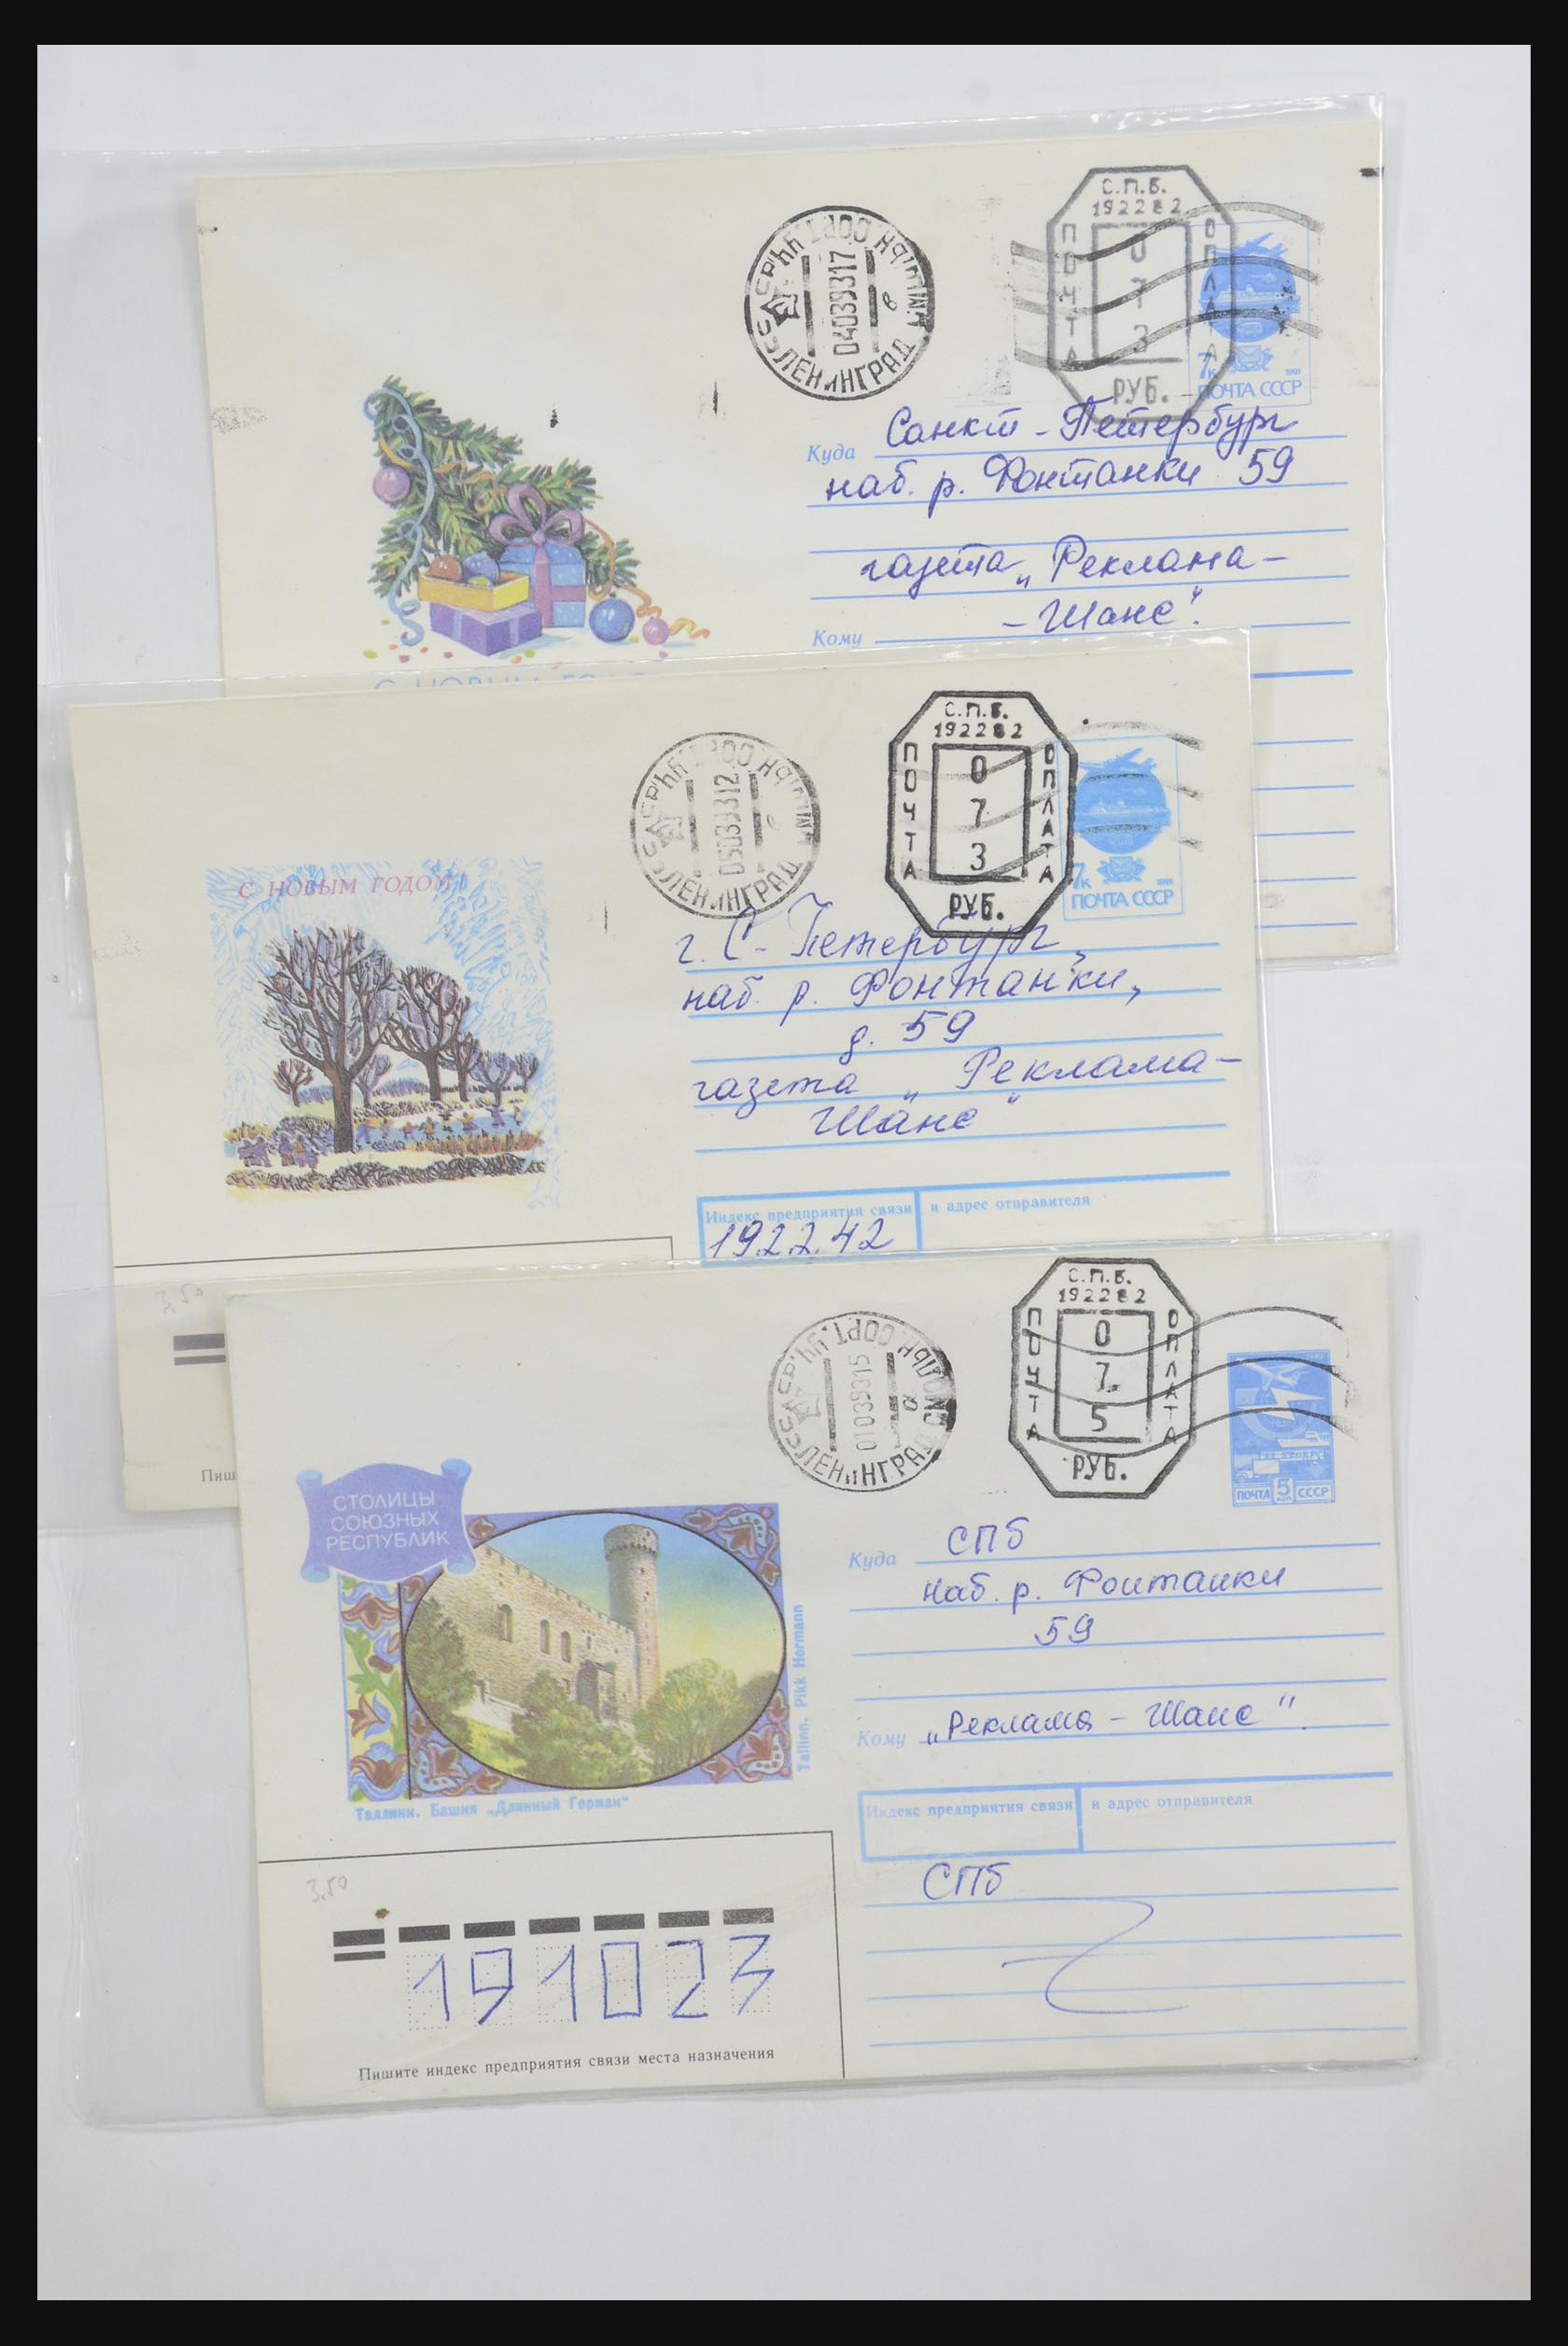 С.П.Б.
192282
ПОЧТА
ОПЛАТА
0
7
3
РУБ.
ЛЕНИНГРАД
04039317
7к
1991
ПОЧТА СССР
Куда Санкт-Петербург
наб. р. Фонтанки 59
газета „Реклама-
-Шанс".
Кому
С НОВЫМ ГОДОМ
С.П.Б.
192282
ПОЧТА
ОПЛАТА
0
7
3
РУБ.
ЛЕНИНГРАД
05039312
7к
1991
ПОЧТА СССР
С НОВЫМ ГОДОМ!
г. С-Петербург,
наб. р. Фонтанки,
д. 59
газета „Реклама-
Шанс"
Индекс предприятия связи
и адрес отправителя
192242
3,50
Пиш
С.П.Б.
192282
ПОЧТА
ОПЛАТА
0
7
5
РУБ.
ЛЕНИНГРАД
01039315
ПОЧТА 5 СССР
СТОЛИЦЫ
СОЮЗНЫХ
РЕСПУБЛИК
Tallinn. Pikk Hermann
Таллинн. Башня „Длинный Герман"
Куда СПб
наб. р. Фонтанки
59
Кому „Реклама-Шанс"
Индекс предприятия связи
и адрес отправителя
СПб
3,50
191023
Пишите индекс предприятия связи места назначения